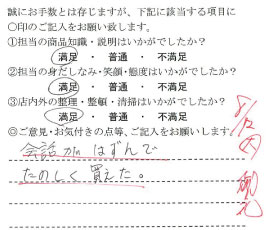 誠にお手数とは存じますが、下記に該当する項目に
〇印のご記入をお願い致します。
①担当の商品知識・説明はいかがでしたか？
満足 ・ 普通 ・ 不満足
②担当の身だしなみ・笑顔・態度はいかがでしたか？
満足 ・ 普通 ・ 不満足
③店内外の整理・整頓・清掃はいかがでしたか？
満足 ・ 普通 ・ 不満足
◎ご意見・お気付きの点等、ご記入をお願いします。
会話がはずんで
たのしく買えた。